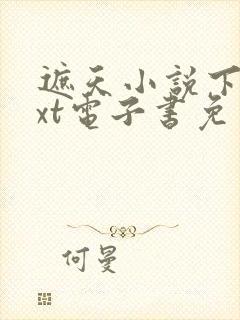 遮天小説下
xt電子書免
何曼